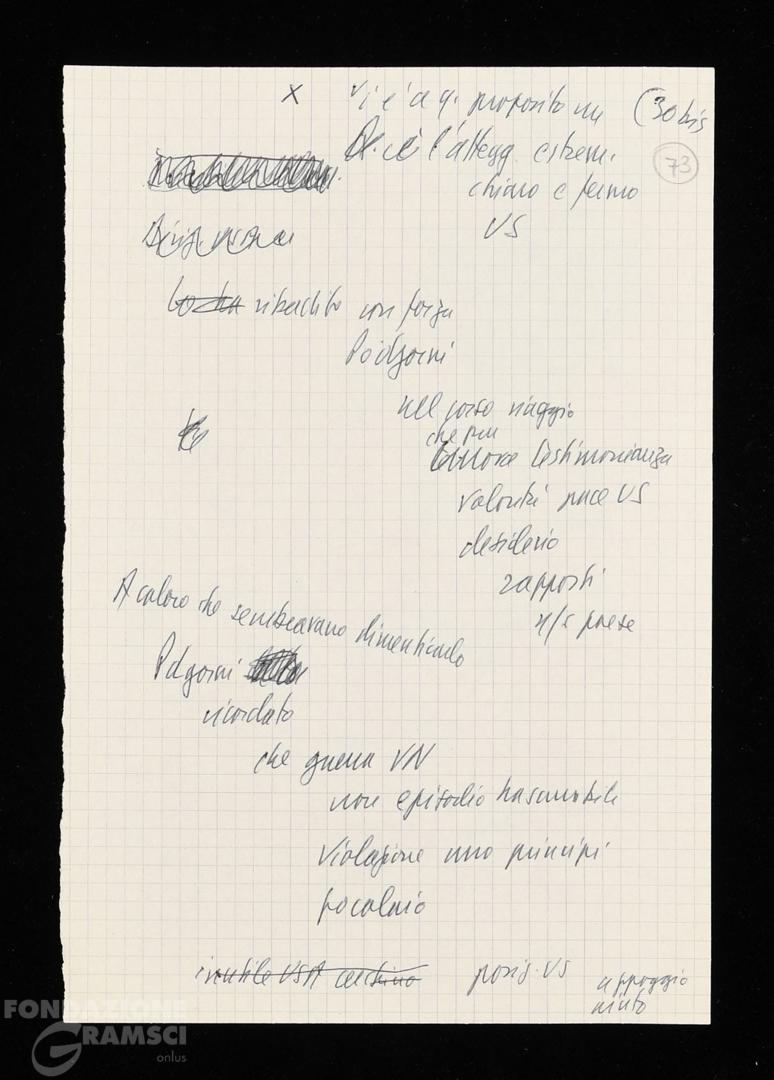 x vi è a q. proposito un (30 bis
è l'attegg. estrem.
73
chiaro e fermo
VS
Lo ha ribadito con forza
Podgorni
nel corso viaggio
che pur
testimonianza
volontà pace VS
desiderio
rapporti
n/s paese
A coloro che sembravano dimenticarlo
Pdgorni
ricordato
che guerra VN
non episodio trascurabile
violazione uno principi
focolaio
inutile USA cerchino posiz. VS appoggio
aiuto
FONDAZIONE
GRAMSCI
onlus